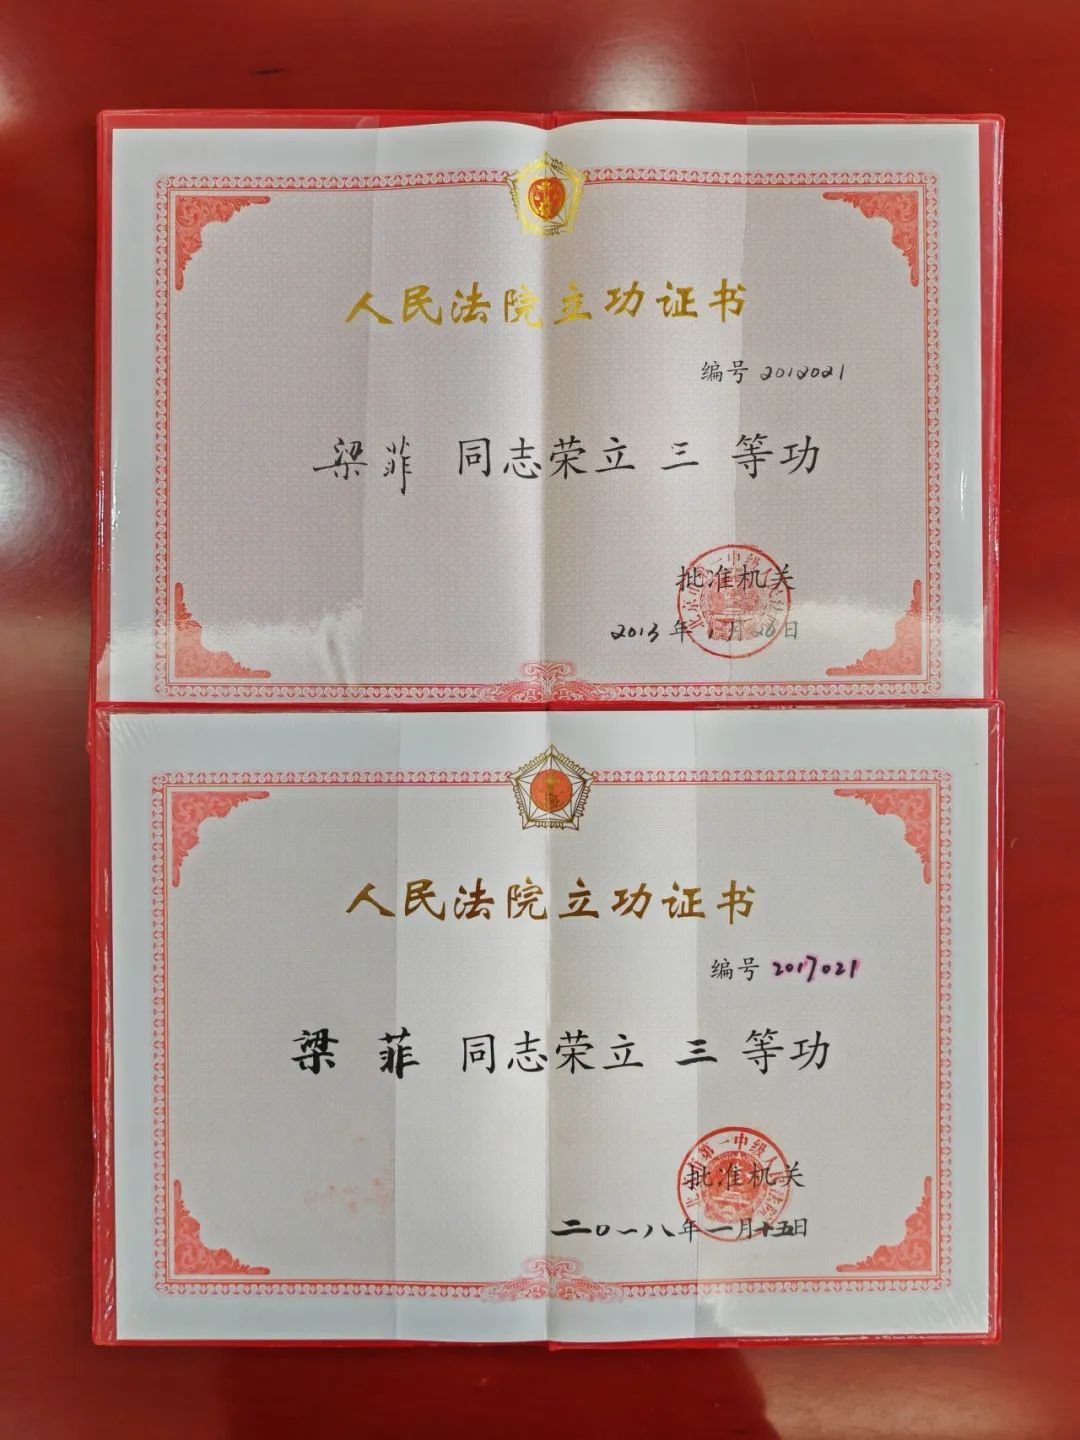 人民法院立功证书
编号 2012021
梁菲 同志荣立 三 等功
批准机关
2013 年 1 月 28 日
人民法院立功证书
编号 2017021
梁菲 同志荣立 三 等功
北京市第一中级人民法院
批准机关
二〇一八年一月十五日